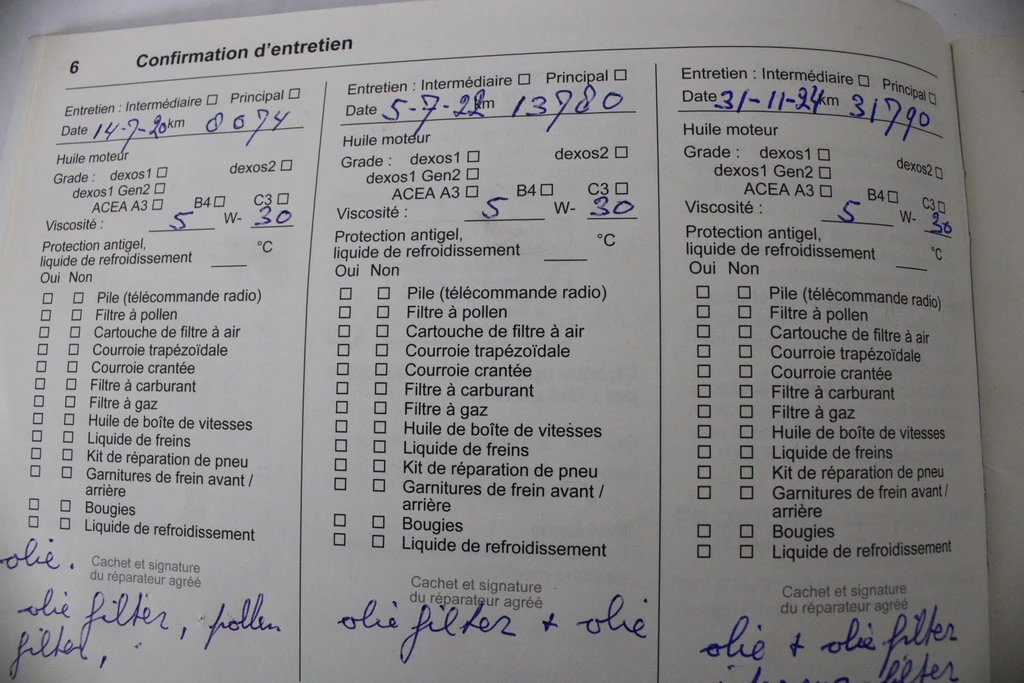 6 Confirmation d'entretien
Entretien : Intermédiaire Principal
Date 14-7-20 km 8074
Huile moteur
Grade : dexos1 dexos2
dexos1 Gen2
ACEA A3 B4 C3
Viscosité : 5 W- 30
Protection antigel,
liquide de refroidissement °C
Oui Non
Pile (télécommande radio)
Filtre à pollen
Cartouche de filtre à air
Courroie trapézoïdale
Courroie crantée
Filtre à carburant
Filtre à gaz
Huile de boîte de vitesses
Liquide de freins
Kit de réparation de pneu
Garnitures de frein avant /
arrière
Bougies
Liquide de refroidissement
olie.
Cachet et signature
du réparateur agréé
olie filter, pollen
filter,
Entretien : Intermédiaire Principal
Date 5-7-22 km 13780
Huile moteur
Grade : dexos1 dexos2
dexos1 Gen2
ACEA A3 B4 C3
Viscosité : 5 W- 30
Protection antigel,
liquide de refroidissement °C
Oui Non
Pile (télécommande radio)
Filtre à pollen
Cartouche de filtre à air
Courroie trapézoïdale
Courroie crantée
Filtre à carburant
Filtre à gaz
Huile de boîte de vitesses
Liquide de freins
Kit de réparation de pneu
Garnitures de frein avant /
arrière
Bougies
Liquide de refroidissement
Cachet et signature
du réparateur agréé
olie filter + olie
Entretien : Intermédiaire Principal
Date 31-11-24 km 31790
Huile moteur
Grade : dexos1 dexos2
dexos1 Gen2
ACEA A3 B4 C3
Viscosité : 5 W- 30
Protection antigel,
liquide de refroidissement °C
Oui Non
Pile (télécommande radio)
Filtre à pollen
Cartouche de filtre à air
Courroie trapézoïdale
Courroie crantée
Filtre à carburant
Filtre à gaz
Huile de boîte de vitesses
Liquide de freins
Kit de réparation de pneu
Garnitures de frein avant /
arrière
Bougies
Liquide de refroidissement
Cachet et signature
du réparateur agréé
olie + olie filter
filter